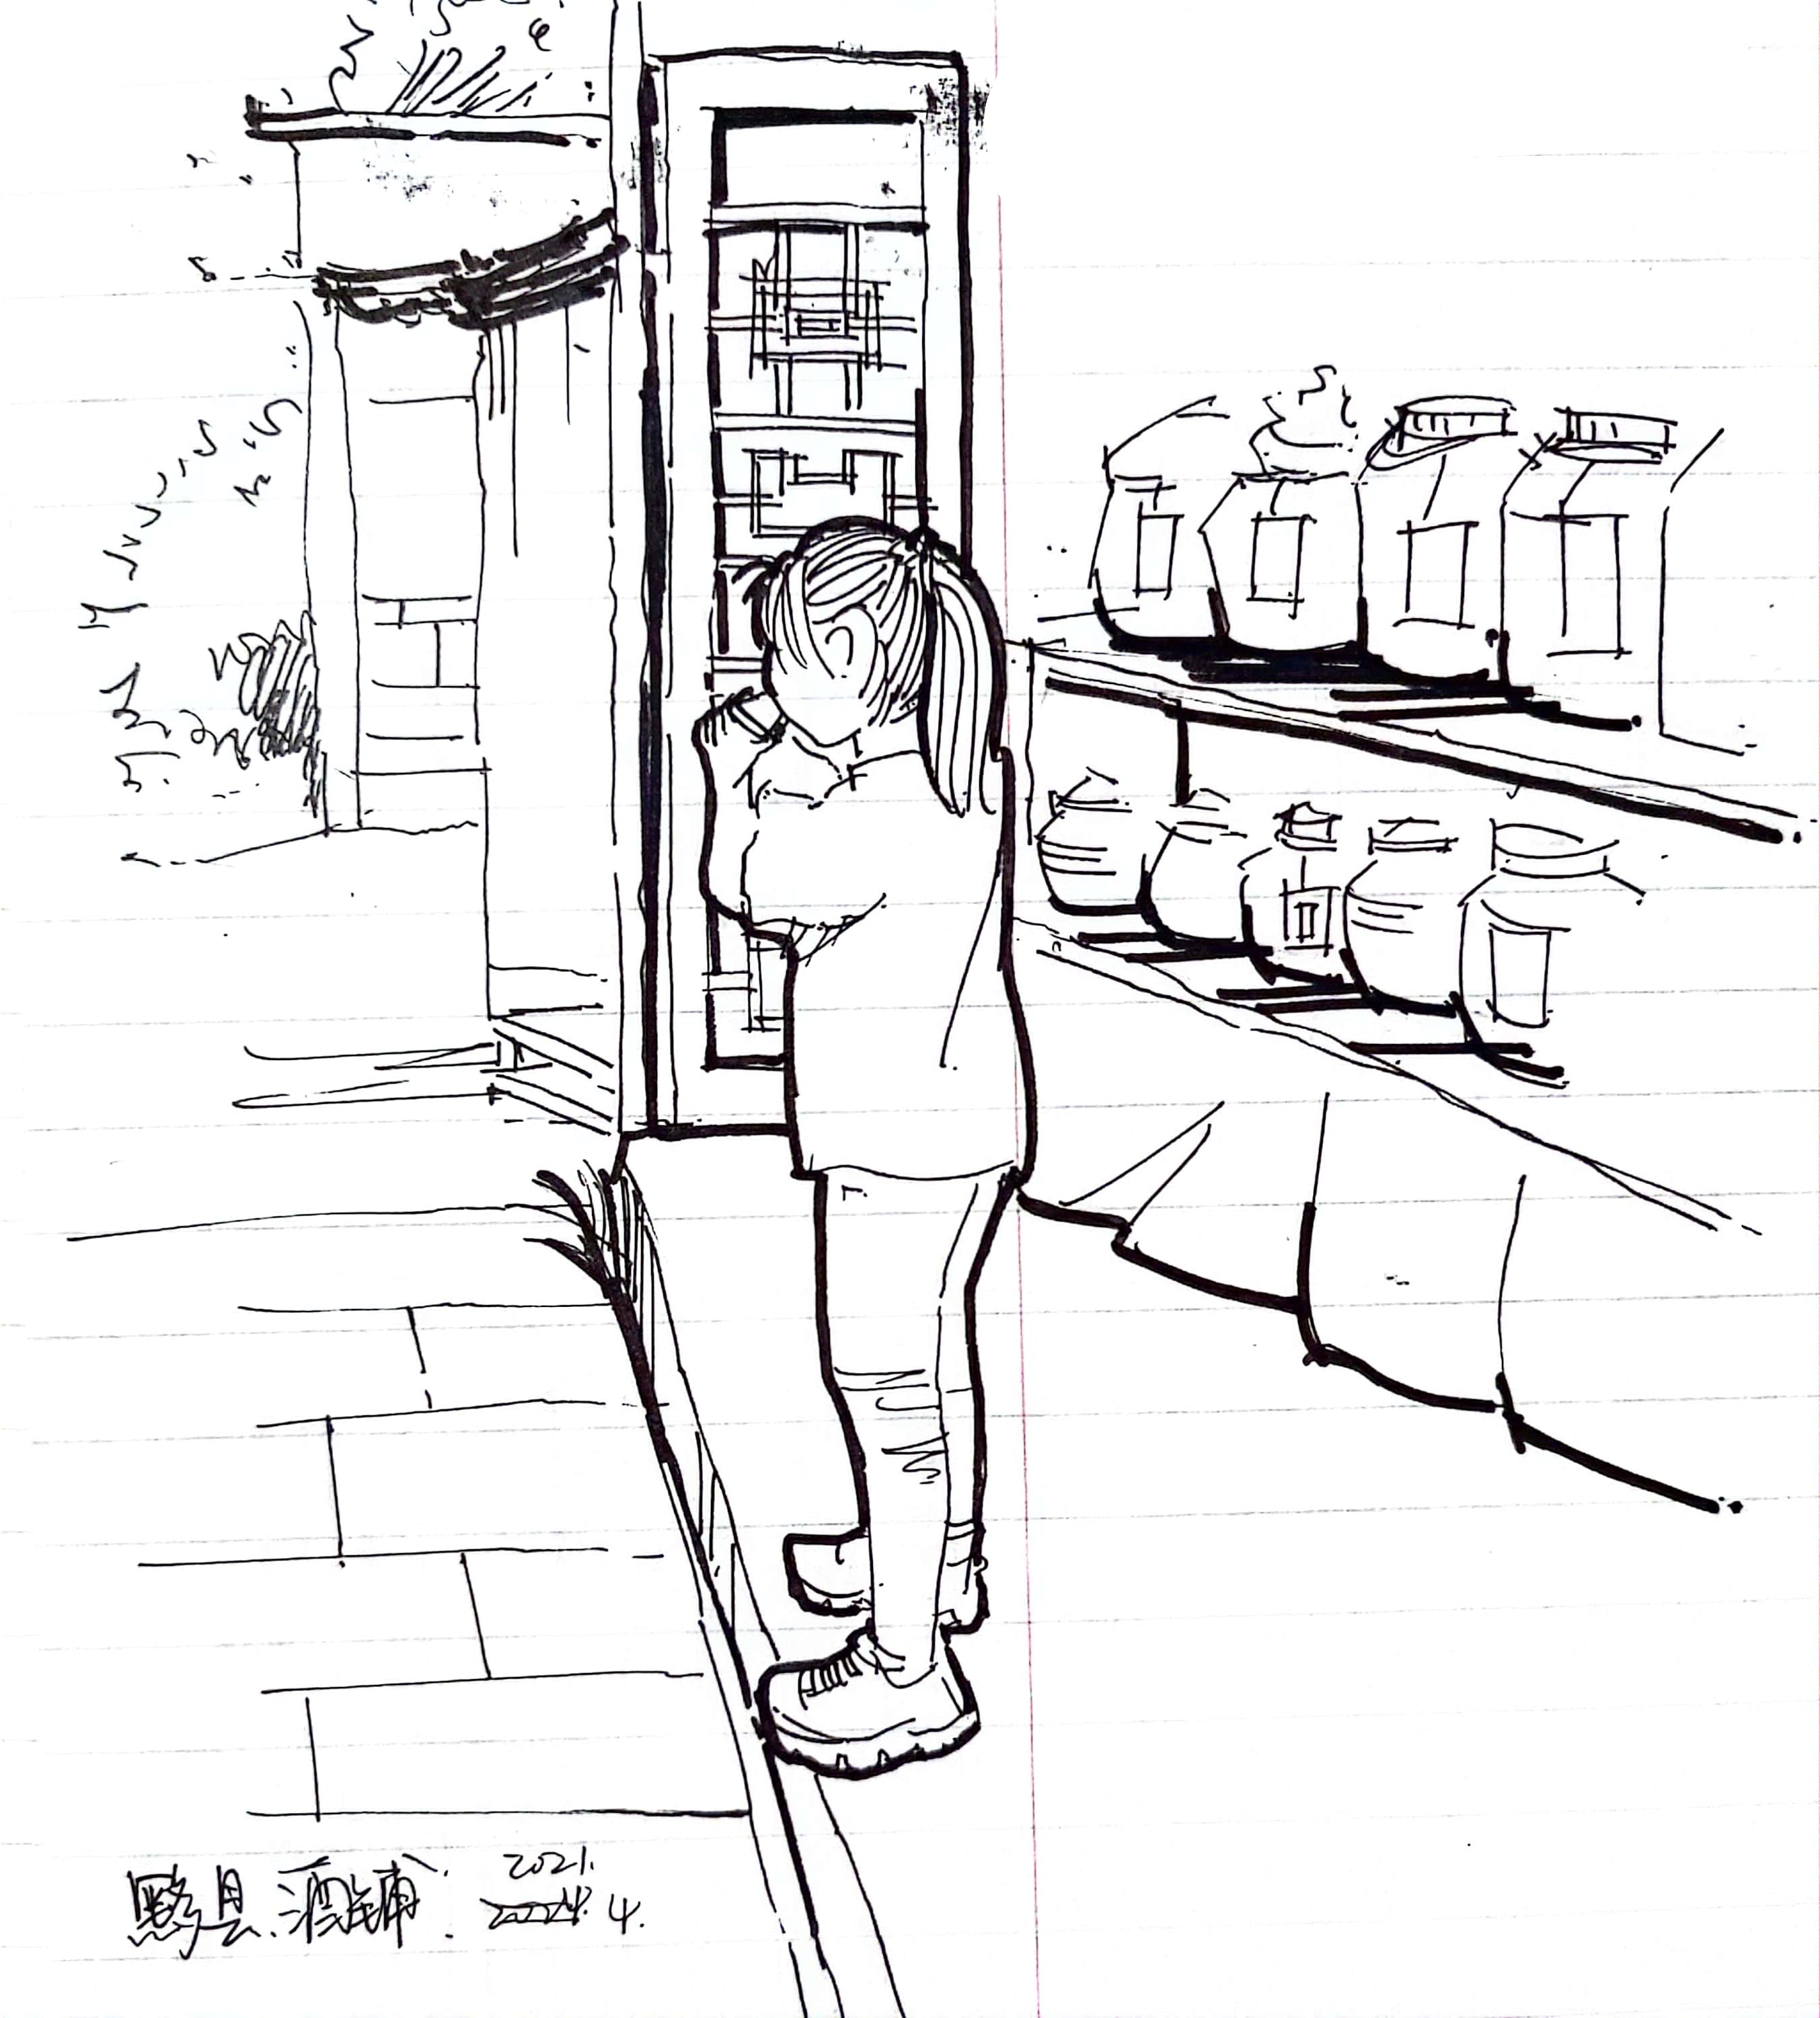 黟县.酒铺. 2021.
4.